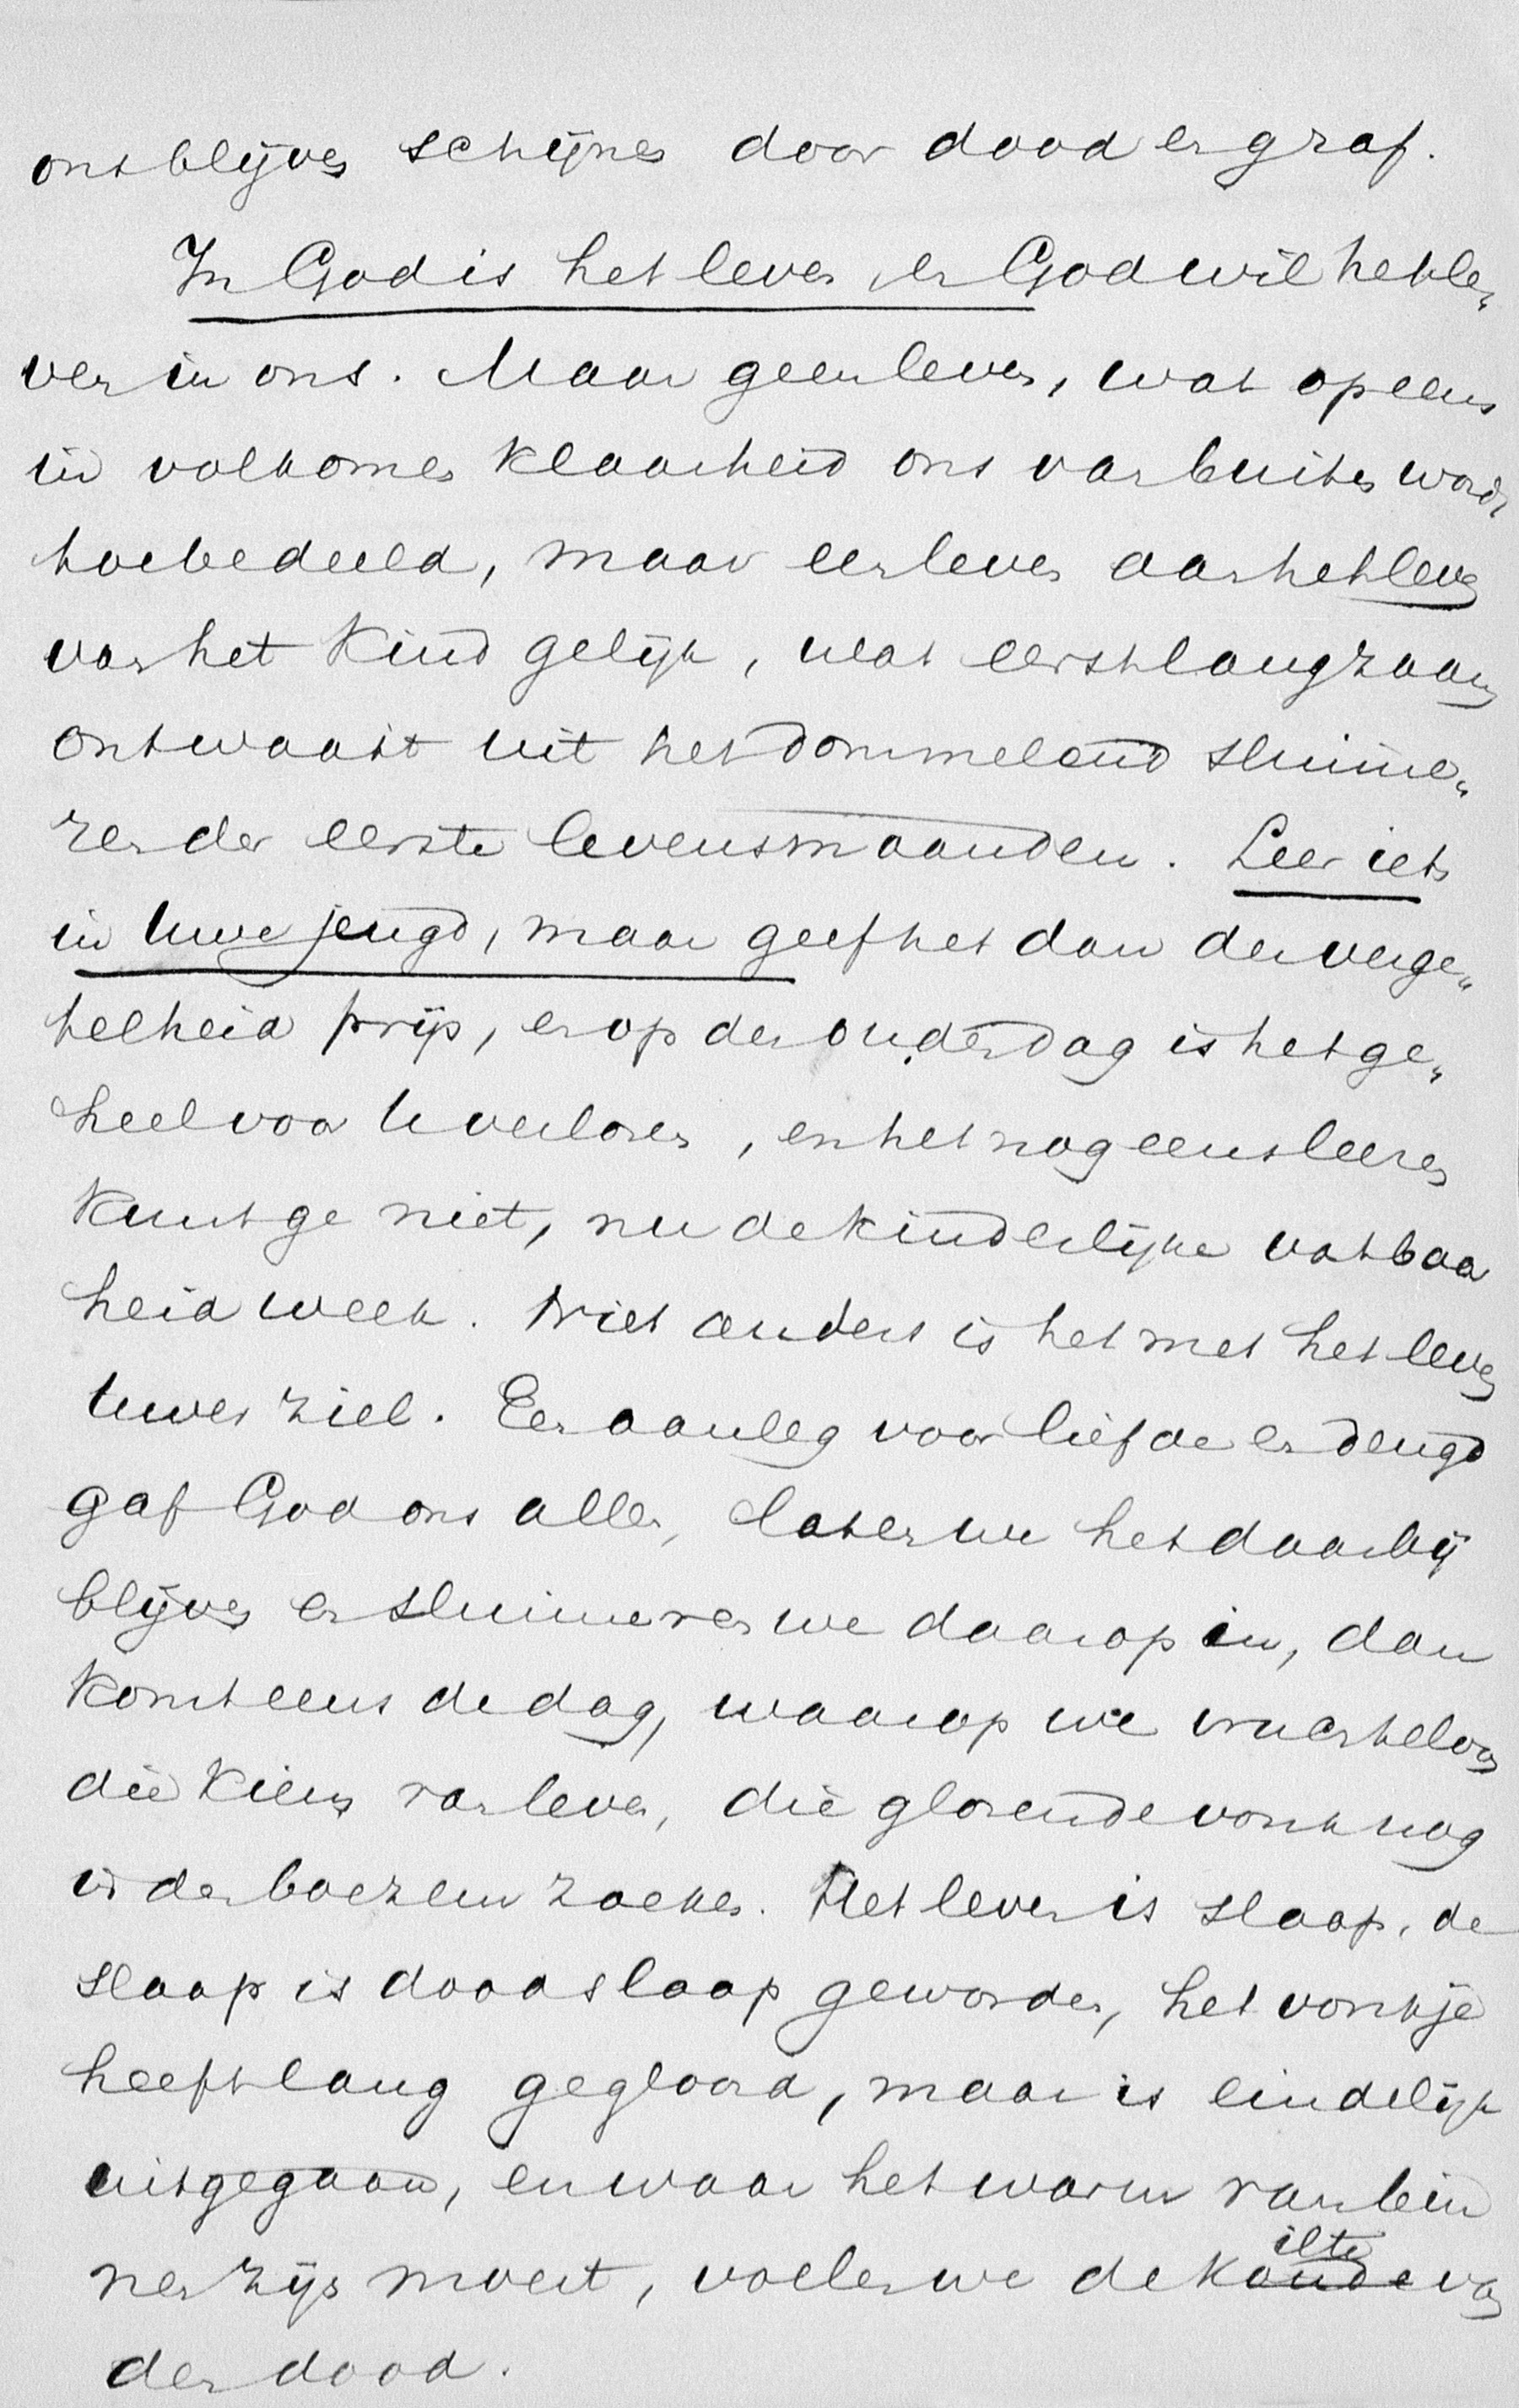 ons blijven schijnen door dood en graf.
In God is het leven, en God wil het le„
ven in ons. Maar geen leven, wat opeens
in volkomen klaarheid ons van buiten wordt
toebedeeld, maar een leven aan het leven
van het kind gelijk, wat eerst langzaam
ontwaakt uit het dommelend sluime„
ren der eerste levensmaanden. Leer iets
in Uwe jeugd, maar geef het dan der verge„
telheid prijs, en op den ouden dag is het ge„
heel voor U verloren, en het nog eens leeren
kunt ge niet, nu de kinderlijke vatbaar
heid week. Niet anders is het met het leven
Uwer ziel. Een aanleg voor liefde en deugd
gaf God ons allen, laten we het daarbij
blijven en sluimeren we daarop in, dan
komt eens de dag, waarop we vruchteloos
die kiem van leven, die glorende vonk nog
in den boezem zoeken. Het leven is slaap, de
slaap is doodslaap geworden, het vonkje
heeft lang gegloord, maar is eindelijk
uitgegaan, en waar het warm van bin
nen zijn moest, voelen we de koude ilte van
den dood.